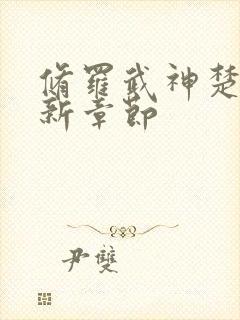 脩羅武神楚
新章節
尹雙